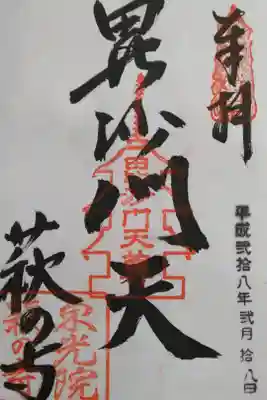 奉拝
平成弐拾八年弐月拾八日
毘沙門天
萩の寺
東光院
萩の寺